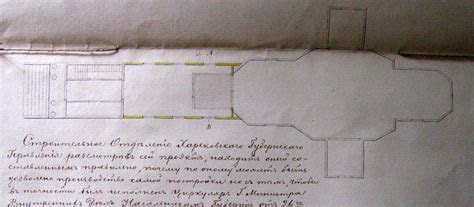 А
В
Строительное Отдѣленіе Харьковскаго Губернскаго
Правленія разсмотрѣвъ сей проэктъ, находитъ оный со-
ставленнымъ правильно, почему по оному можетъ быть
дозволено производство самой постройки но съ тѣмъ, чтобы
въ точности былъ исполненъ Циркуляръ Г. Министра
Внутреннихъ Дѣлъ Начальникамъ Губерній отъ 26го